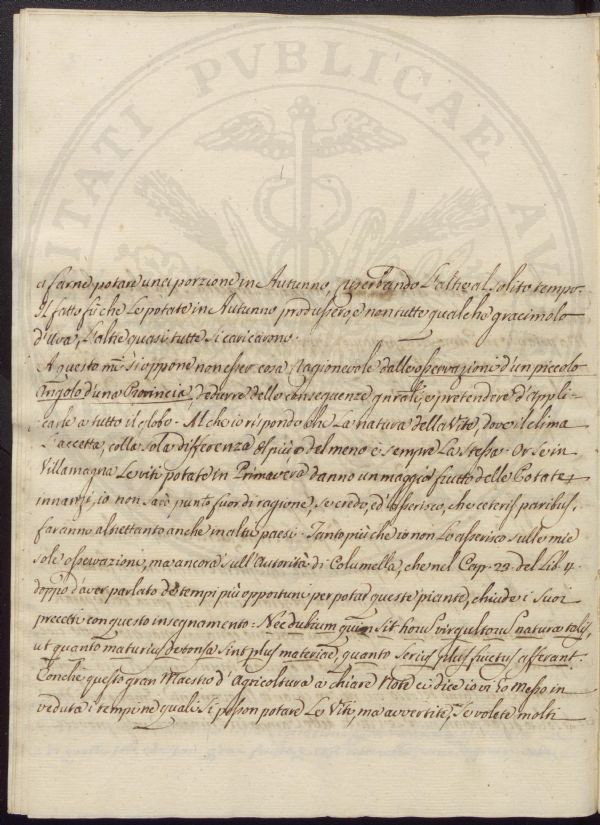 a farne potare una porzione in Autunno, riserbando l'altre al solito tempo.
Il fatto fù che le potate in Autunno produssero, e non tutte qualche gracimolo
d'Uva, l'altre quasi tutte si caricarono.
A questo mi si oppone non esser cosa ragionevole dall'osservazioni d'un piccolo
Angolo d'una Provincia, dedurre delle conseguenze gnrali, e pretendere d'appli-
carle a tutto il globo. Al che io rispondo che la natura della Vite, dove il clima
l'accetta, colla sola differenza del più o del meno è sempre la stessa. Or se in
Villamagna le viti potate in Primavera danno un maggior frutto delle Potate
innanzi, io non sarò punto fuor di ragione, se credo, ed asserisco, che ceteris paribus,
faranno altrettanto anche in altri paesi. Tanto più che io non l'asserisco sulle mie
sole osservazione, ma ancora sull'Autorità di Columella, che nel Cap. 23. del Lib. 4.
doppo d'aver parlato de tempi più opportuni per potar queste piante, chiude i suoi
precetti con questo insegnamento: Nec dubium quin sit horus virgultorus naturæ talis,
ut quanto maturius detonsa sint plus materiæ, quanto serius plus fructus afferant.
Conchè questo gran Maestro d'Agricoltura a chiare Note ci dice io vi hò messo in
veduta i tempi ne quali si posson potare le Viti, ma avvertite, se volete molti
ITATI PVBLICAE AV